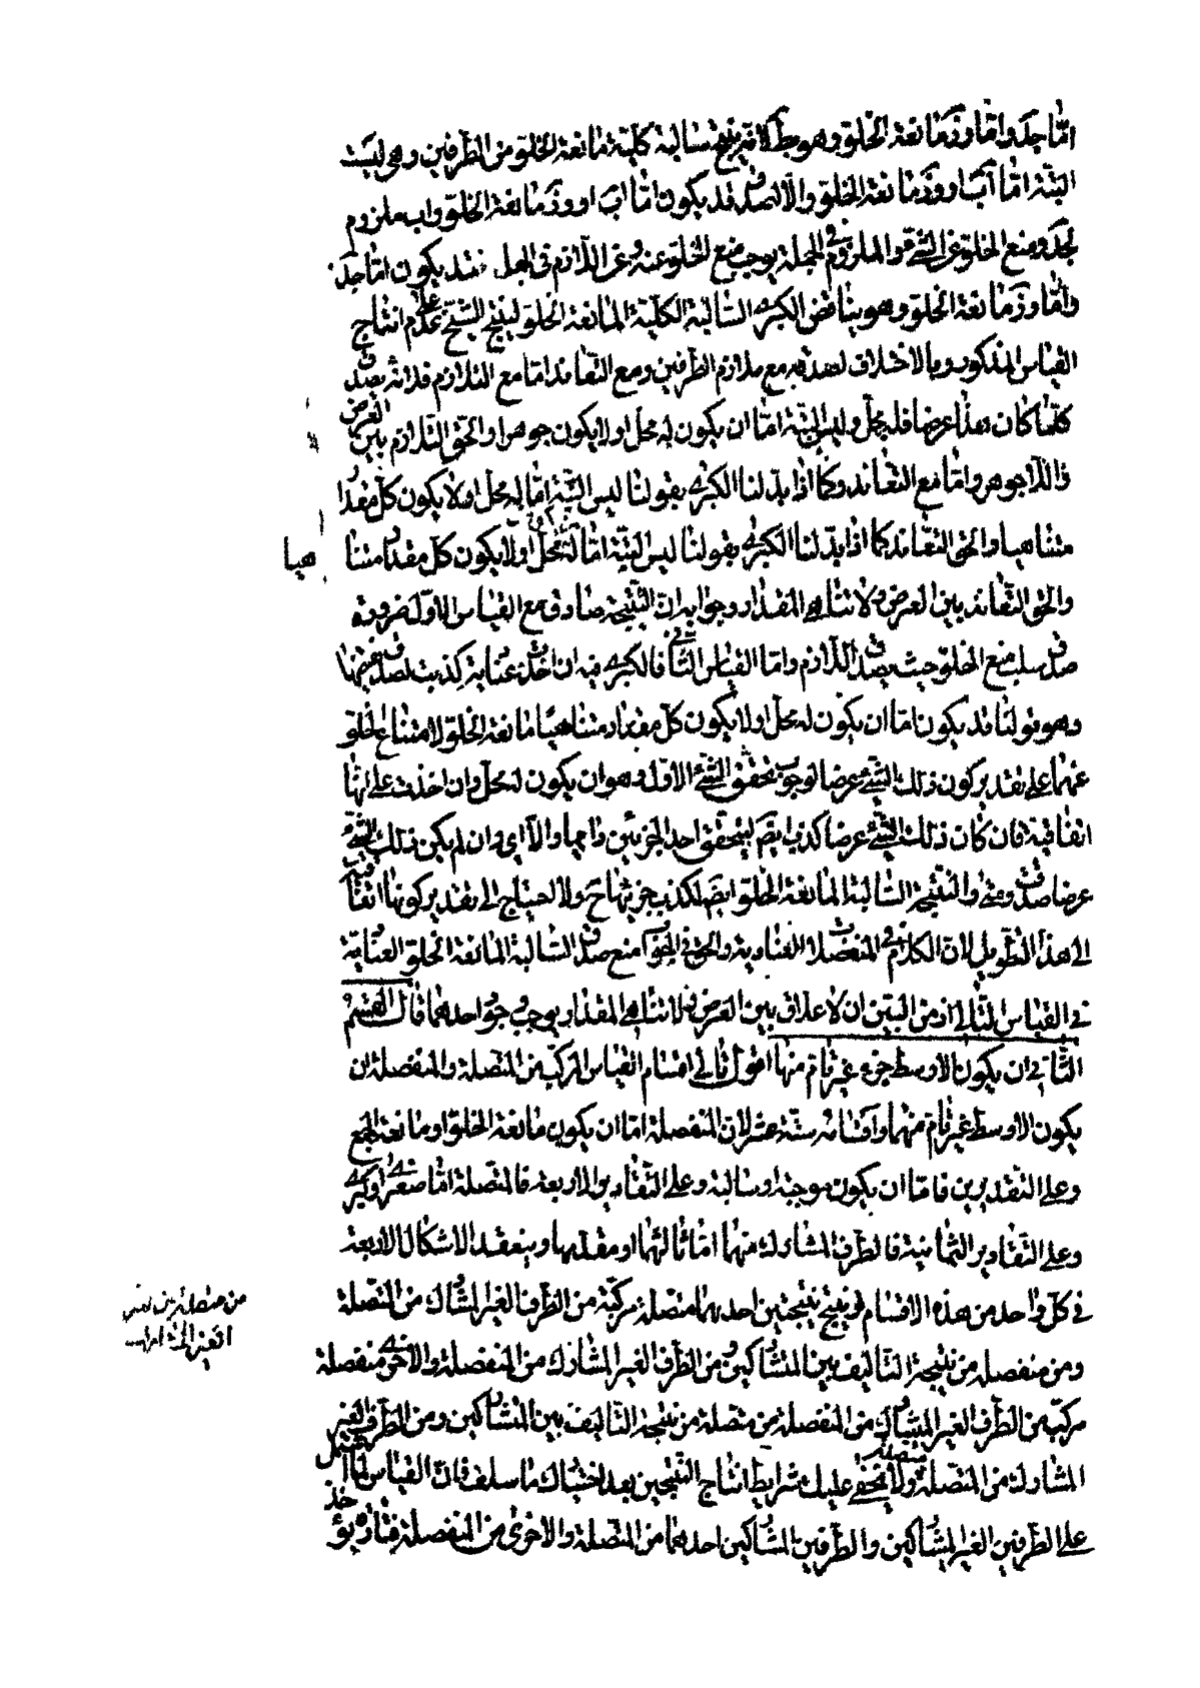 اما جد واما وز مانعة الخلو وهو ينتج سالبة كلية مانعة الخلو من الطرفين وهى ليست
البتة اما اب او وز مانعة الخلو والا لصدق قد يكون اما اب او وز مانعة الخلو واب ملزوم
لجد ومنع الخلو عن الشئ والملزوم فى الجملة يوجب منع الخلو عنه وعن اللازم فى الجملة فقد يكون اما جد
واما وز مانعة الخلو وهو يناقض الكبرى السالبة الكلية المانعة الخلو الشيخ على عدم انتاج
القياس المذكور وبالاختلاف لصدقه مع تلازم الطرفين ومع التعاند اما مع التلازم فلانه يصدق
كلما كان هذا عرضا فله محل وليس البتة اما ان يكون له محل او لا يكون جوهرا والحق التلازم بين العرض
واللاجوهر واما مع التعاند وكما اذا بدلنا الكبرى بقولنا ليس البتة اما له محل او لا يكون كل مقدار
متناهيا والحق التعاند كما اذا بدلنا الكبرى بقولنا ليس البتة اما له محل او لا يكون كل مقدار متنا هيا
والحق التعاند بين العرض ولا تناهى المقدار وجوابه ان النتيجة صادقة مع القياس الاول ضرورة
صدق سلب منع الخلو حيث يصدق اللازم واما القياس الثانى فالكبرى فيه ان اخذت عنادية كذبت لصدق نقيضها
وهو قولنا قد يكون اما ان يكون له محل او لا يكون كل مقدار متناهيا مانعة الخلو لامتناع الخلو
عنهما على تقدير كون ذلك الشئ عرضا لوجوب تحقق الشئ الاول وهو ان يكون له محل وان اخذت على انها
اتفاقية فان كان ذلك الشئ عرضا كذب ايضا لتحقق احد الجزئين دايما والا اى وان لم يكن ذلك الشئ
عرضا صدقت والنتيجة السالبة المانعة الخلو ايضا لكذب جزئيها ح ولا احتياج الى تقدير كونها اتفاقية
الى هذا التطويل لان الكلام فى المنفصلات العنادية والحق فى الجواب منع صدق السالبة المانعة الخلو العنادية
فى القياس الثانى اذ من البين ان لا علاقة بين العرض ولا تناهى المقدار يوجب وجود احدهما قال القسم
الثانى ان يكون الاوسط جزء غير تام منها اقول ثانى اقسام القياس المركب من المتصلة والمنفصلة ان
يكون الاوسط غير تام منهما واقسامه ستة عشر لان المنفصلة اما ان يكون مانعة الخلو او مانعة الجمع
وعلى التقديرين فاما ان يكون موجبة او سالبة وعلى التقادير الاربعة فالمتصلة اما صغرى او كبرى
وعلى التقادير الثمانية فالطرف المشارك منهما اما تاليهما او مقدمها وينعقد الاشكال الاربعة
فى كل واحد من هذه الاقسام فينتج نتيجتين احدهما متصلة مركبة من الطرف الغير المشارك من المتصلة
ومن منفصلة من نتيجة التاليف بين المتشاركين ومن الطرف الغير المشارك من المنفصلة والاخرى منفصلة
مركبة من الطرف الغير المشارك من المنفصلة من متصلة من نتيجة التاليف بين المتشاركين ومن الطرف الغير
المشارك من المتصلة ولا يخفى عليك شرايط انتاج النتيجتين بعد ما سلف فان القياس لما اشتمل
على الطرفين الغير المتشاركين والطرفين المتشاركين احدهما من المتصلة والاخرى من المنفصلة فتارة يؤخذ